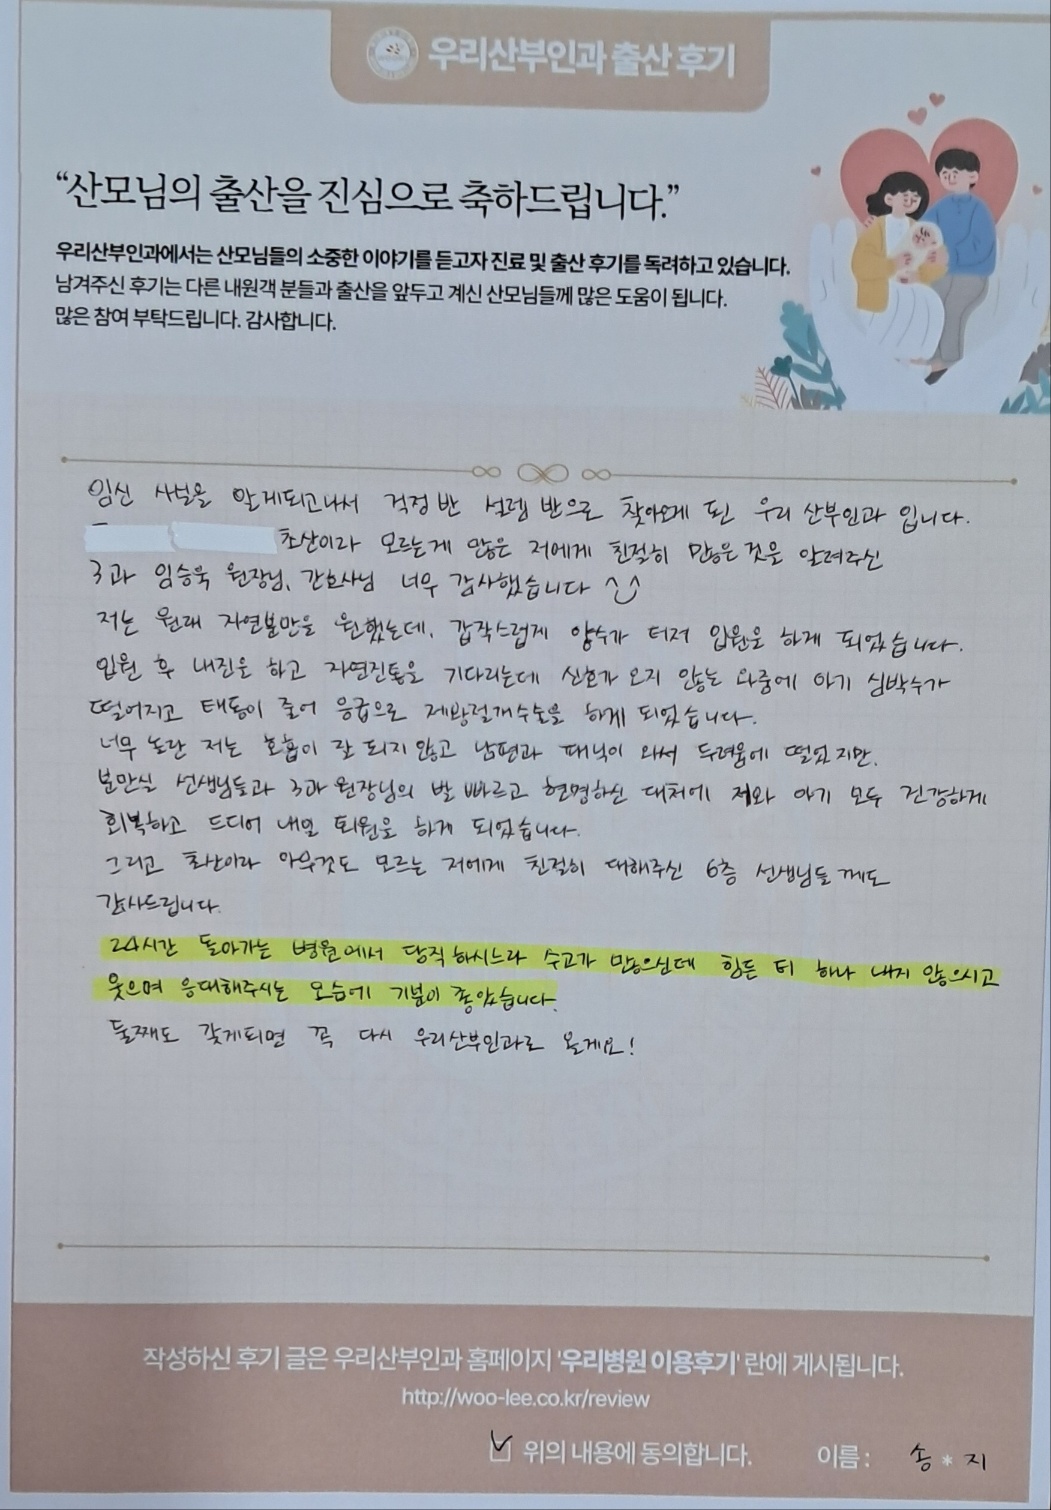 우리산부인과 출산 후기
“산모님의 출산을 진심으로 축하드립니다.”
우리산부인과에서는 산모님들의 소중한 이야기를 듣고자 진료 및 출산 후기를 독려하고 있습니다.
남겨주신 후기는 다른 내원객 분들과 출산을 앞두고 계신 산모님들께 많은 도움이 됩니다.
많은 참여 부탁드립니다. 감사합니다.
임신 사실을 알게되고나서 걱정 반 설렘 반으로 찾아오게 된 우리 산부인과 입니다.
초산이라 모르는게 많은 저에게 친절히 많은 것을 알려주신
3과 임승욱 원장님, 간호사님 너무 감사했습니다 ^^
저는 원래 자연분만을 원했는데, 갑작스럽게 양수가 터져 입원을 하게 되었습니다.
입원 후 내진을 하고 자연진통을 기다리는데 신호가 오지 않는 와중에 아기 심박수가
떨어지고 태동이 줄어 응급으로 제왕절개수술을 하게 되었습니다.
너무 놀란 저는 호흡이 잘 되지 않고 남편과 패닉이 와서 두려움에 떨었지만,
분만실 선생님들과 3과 원장님의 발 빠르고 현명하신 대처에 저와 아기 모두 건강하게
회복하고 드디어 내일 퇴원을 하게 되었습니다.
그리고 초산이라 아무것도 모르는 저에게 친절히 대해주신 6층 선생님들 께도
감사드립니다.
24시간 돌아가는 병원에서 당직하시느라 수고가 많으신데 힘든 티 하나 내지 않으시고
웃으며 응대해주시는 모습에 기분이 좋았습니다.
둘째도 갖게되면 꼭 다시 우리산부인과로 올게요!
작성하신 후기 글은 우리산부인과 홈페이지 '우리병원 이용후기' 란에 게시됩니다.
http://woo-lee.co.kr/review
위의 내용에 동의합니다. 이름 : 송 * 지